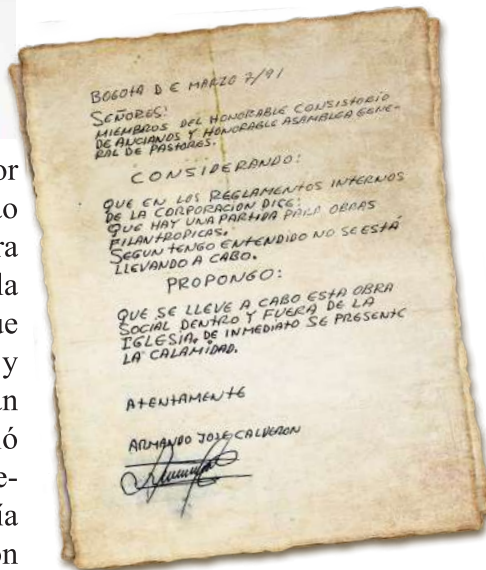 BOGOTA D E MARZO 7/91
SEÑORES:
MIEMBROS DEL HONORABLE CONSISTORIO
DE ANCIANOS Y HONORABLE ASAMBLEA GENE-
RAL DE PASTORES.
CONSIDERANDO:
QUE EN LOS REGLAMENTOS INTERNOS
DE LA CORPORACION DICE:
QUE HAY UNA PARTIDA PARA OBRAS
FILANTROPICAS.
SEGUN TENGO ENTENDIDO NO SE ESTÁ
LLEVANDO A CABO.
PROPONGO:
QUE SE LLEVE A CABO ESTA OBRA
SOCIAL DENTRO Y FUERA DE LA
IGLESIA, DE INMEDIATO SE PRESENTE
LA CALAMIDAD.
ATENTAMENTE
ARMANDO JOSE CALDERON
or
ra
la
ue
y
an
ió
e-
ía
on